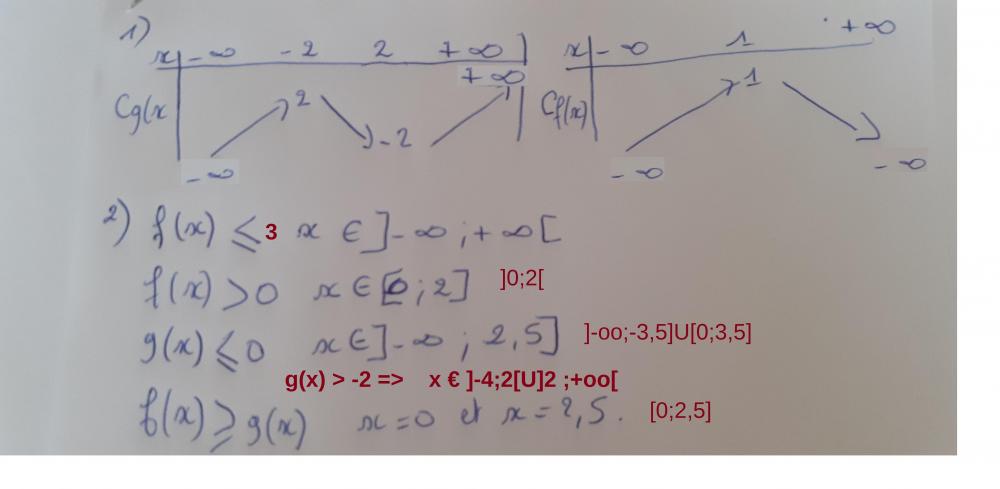 1)
x - ∞ - 2 2 + ∞
+ ∞
Cg(x 2 - 2
- ∞
x - ∞ 1 + ∞
Cf(x) 1
- ∞ - ∞
2) f(x) ⩽ 3 x ∈ ]- ∞ ; + ∞ [
f(x) > 0 x ∈ [0 ; 2] ]0;2[
g(x) ⩽ 0 x ∈ ]- ∞ ; 2,5] ]-oo;-3,5]U[0;3,5]
g(x) > -2 => x € ]-4;2[U]2 ;+oo[
f(x) ⩾ g(x) x = 0 et x = 2,5. [0;2,5]